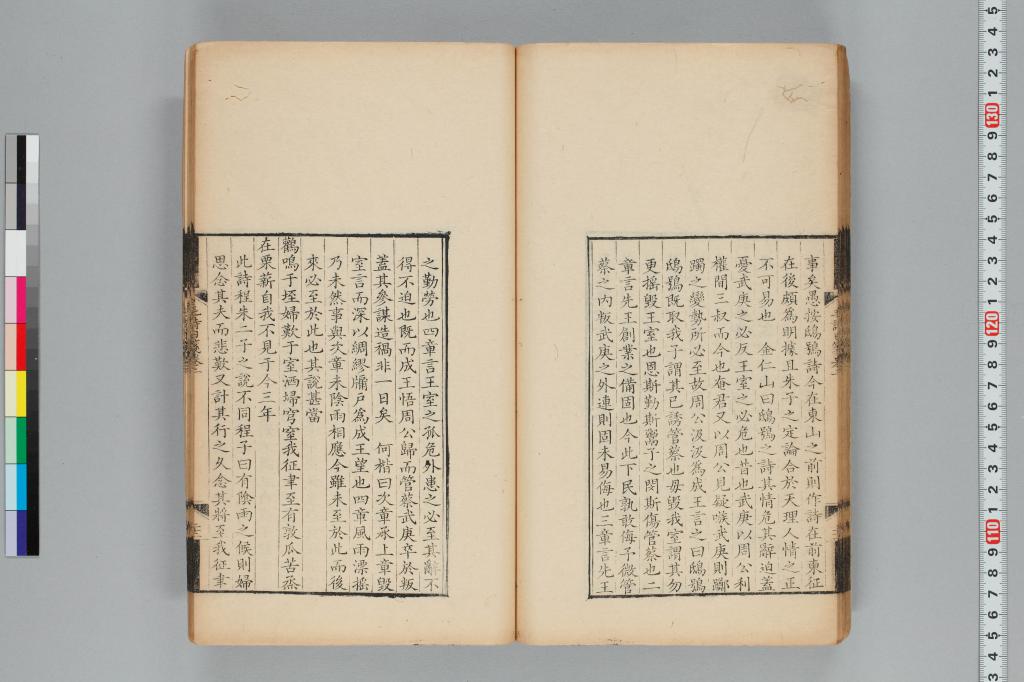 事矣愚按鴟鴞詩今在東山之前則作詩在前東征
在後頗為明據且朱子之定論合於天理人情之正
不可易也　金仁山曰鴟鴞之詩其情危其辭迫蓋
憂武庚之必反王室之必危也昔也武庚以周公利
權間三叔而今也奄君又以周公見疑嗾武庚則鄙
躅之變勢所必至故周公汲汲為成王言之曰鴟鴞
鴟鴞既取我子謂其已誘管蔡也毋毀我室謂其勿
更搖毀王室也恩斯勤斯鬻子之閔斯傷管蔡也二
章言先王創業之備固也今此下民孰敢侮予微管
蔡之內叛武庚之外連則固未易侮也三章言先王
之勤勞也四章言王室之孤危外患之必至其辭不
得不迫也既而成王悟周公歸而管蔡武庚卒於叛
蓋其參謀造禍非一日矣　何楷曰次章承上章毀
室言而深以綢繆牖戶為成王望也四章風雨漂搖
乃未然事與次章未陰雨相應今雖未至於此而後
來必至於此也其說甚當
鸛鳴于垤婦歎于室洒埽穹窒我征聿至有敦瓜苦烝
在栗薪自我不見于今三年
此詩程朱二子之說不同程子曰有陰雨之候則婦
思念其夫而悲歎又計其行之久念其將至我征聿